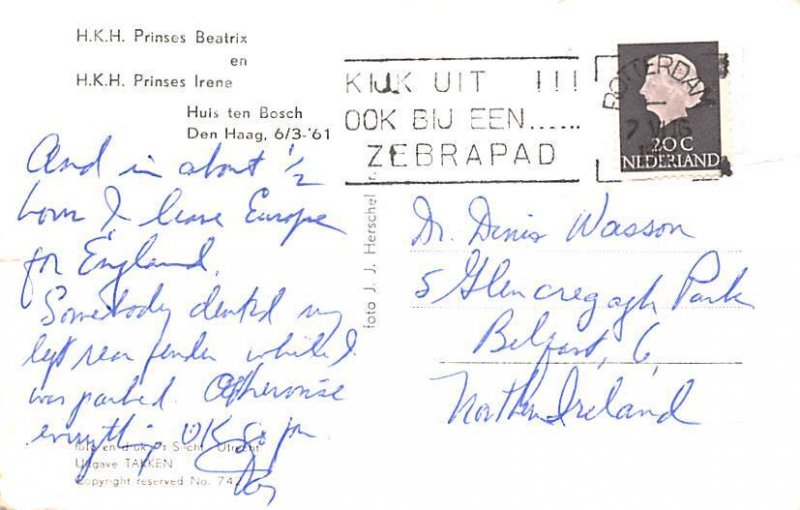 H.K.H. Prinses Beatrix
en
H.K.H. Prinses Irene
Huis ten Bosch
Den Haag, 6/3-'61
KIJK UIT !!!
OOK BIJ EEN......
ZEBRAPAD
ROTTERDAM
20 C
NEDERLAND
And in about 1/2
hour I leave Europe
for England.
Somebody dented my
left rear fender while I
was parked. Otherwise
everything OK So far
foto J. J. Herschel
Dr. Denis Wasson
5 Glencregagh Park
Belfast, 6,
Northern Ireland
Utrecht
Uitgave TAKKEN
Copyright reserved No.